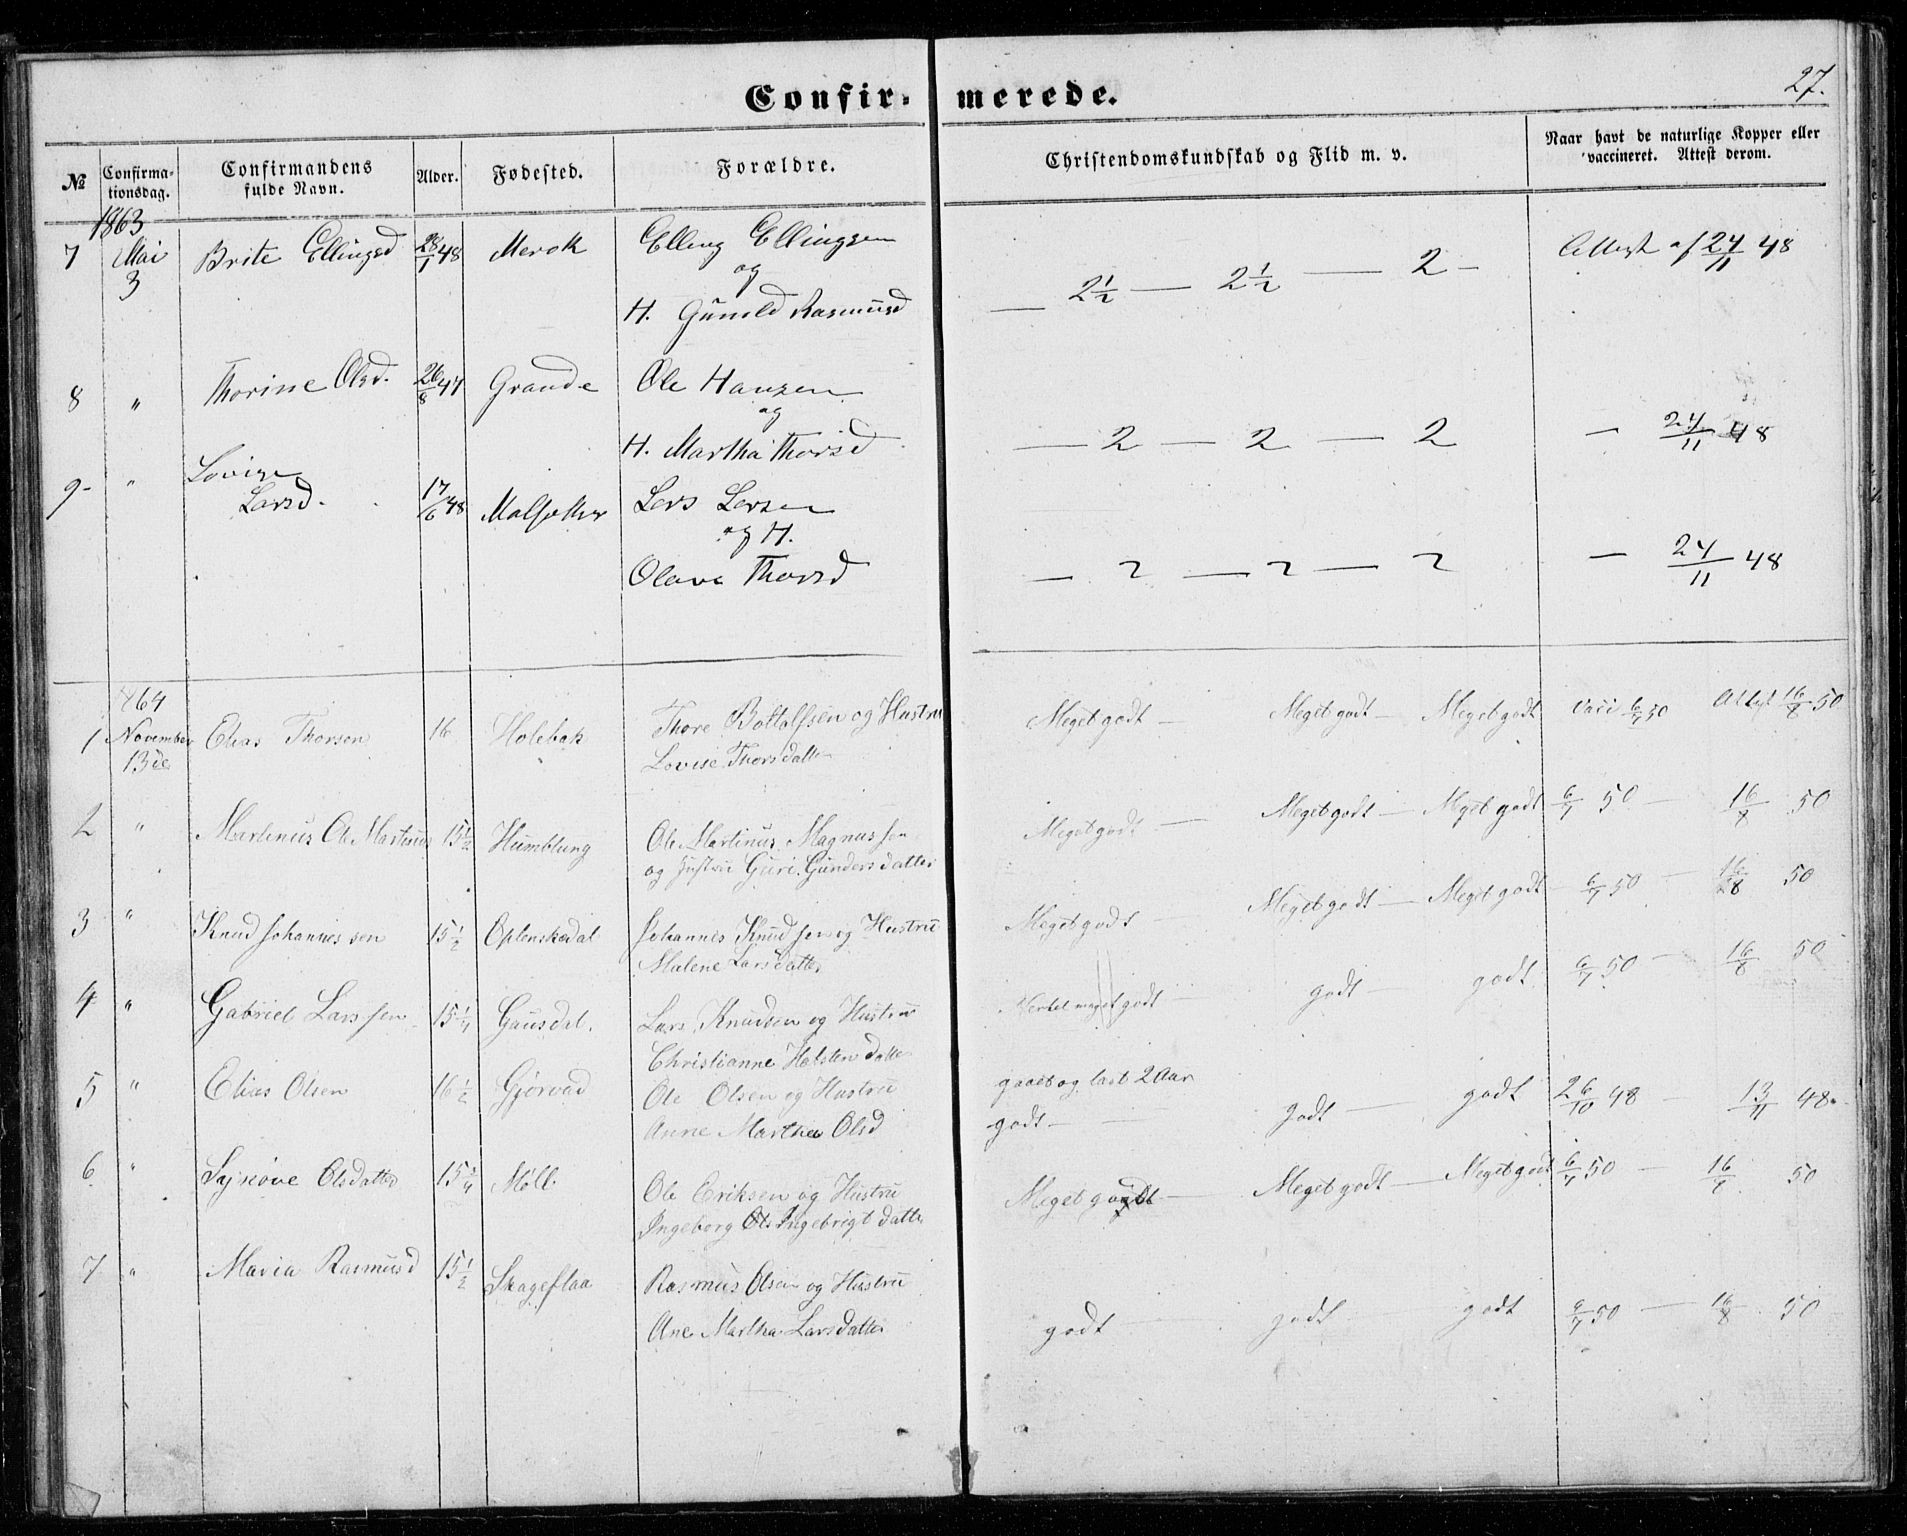 27.
Confir- merede.
№ Confirma-tionsdag. Confirmandens fulde Navn. Alder. Fødested. Forældre. Christendomskundskab og Flid m. v. Naar havt de naturlige Kopper eller vaccineret. Attest derom.
1863
7 Mai 3 Brite Ellingsd 28/1 48 Merok Elling Ellingsen
og
H. Gunild Rasmusd — 2½ — 2½ — 2 — Attest af 24/11 48
8 " Thorine Olsd. 26/8 47 Grande Ole Hansen
og
H. Martha Thorsd — 2 — 2 — 2 — 24/11 48
9 " Lovise
Larsd. 17/6 48 Lars Larsen
og H.
Olava Thorsd — 2 — 2 — 2 — 24/11 48
1 64 November 13de Elias Thorsen 16 Holebak Thore Bottolfsen og Hustru
Lovise Thorsdatter Meget godt — Meget godt — Meget godt Vacc 6/7 50 Attest 16/8 50
2 " Martinus Ole Martinus 15½ Humblung Ole Martinus Magnussen
og Hustru Guri Gundersdatter Meget godt — Meget godt — Meget godt 6/7 50 — 16/8 50
3 " Knud Johannessen 15½ Oplenskedal Johannes Knudsen og Hustru
Malene Larsdatter Meget godt — Meget godt — Meget godt 6/7 50 — 16/8 50
4 " Gabriel Larssen 15¼ Gausdal. Lars Knudsen og Hustru
Christianne Holstendatter meget godt — godt — godt 6/7 50 — 16/8 50
5 " Elias Olsen 16½ Gjørvad Ole Olsen og Hustru
Anne Martha Olsd og last 2 Aar
godt — godt — godt 26/10 48 — 13/11 48.
6 " Synnøve Olsdatter 15¾ Møll Ole Eriksen og Hustru
Ingeborg Ingebrigtdatter Meget godt — Meget godt — Meget godt 6/7 50 — 16/8 50
7 " Maria Rasmusd 15½ Skageflaa Rasmus Olsen og Hustru
Ane Martha Larsdatter godt godt godt 6/7 50 — 16/8 50